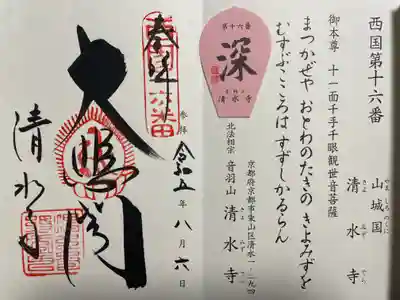 西国第十六番
山城国
やま しろの くに
清水寺
きよ みず でら
御本尊 十一面千手千眼観世音菩薩
まつかぜや おとわのたきの きよみずを
むすぶこころは すずしかるらん
北法相宗 音羽山 清水寺
京都府京都市東山区清水一-二九四
第十六番
深
清水寺
奉拝
参拝 令和五年八月六日
大悲閣
清水寺